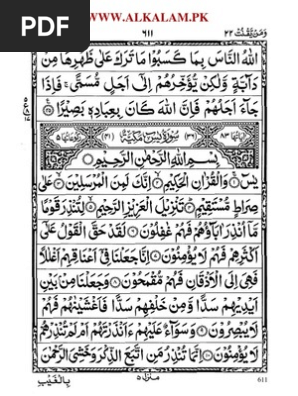 www.ALKALAM.PK
PDF
وَمَن يَّقْنُتْ ٢٢
٦١١
اللهُ النَّاسَ بِمَا كَسَبُوْا مَا تَرَكَ عَلٰى ظَهْرِهَا مِنْ
دَآبَّةٍ وَّلٰكِنْ يُّؤَخِّرُهُمْ اِلٰٓى اَجَلٍ مُّسَمًّى ۚ فَاِذَا
جَآءَ اَجَلُهُمْ فَاِنَّ اللهَ كَانَ بِعِبَادِهٖ بَصِيْرًا
سُوْرَةُ يٰسٓ مَكِّيَّةٌ
بِسْمِ اللهِ الرَّحْمٰنِ الرَّحِيْمِ
يٰسٓ وَالْقُرْاٰنِ الْحَكِيْمِ اِنَّكَ لَمِنَ الْمُرْسَلِيْنَ عَلٰى
صِرَاطٍ مُّسْتَقِيْمٍ تَنْزِيْلَ الْعَزِيْزِ الرَّحِيْمِ لِتُنْذِرَ قَوْمًا
مَّآ اُنْذِرَ اٰبَآؤُهُمْ فَهُمْ غٰفِلُوْنَ لَقَدْ حَقَّ الْقَوْلُ عَلٰٓى
اَكْثَرِهِمْ فَهُمْ لَا يُؤْمِنُوْنَ اِنَّا جَعَلْنَا فِيْٓ اَعْنَاقِهِمْ اَغْلٰلًا
فَهِيَ اِلَى الْاَذْقَانِ فَهُمْ مُّقْمَحُوْنَ وَجَعَلْنَا مِنْۢ بَيْنِ
اَيْدِيْهِمْ سَدًّا وَّمِنْ خَلْفِهِمْ سَدًّا فَاَغْشَيْنٰهُمْ فَهُمْ
لَا يُبْصِرُوْنَ وَسَوَآءٌ عَلَيْهِمْ ءَاَنْذَرْتَهُمْ اَمْ لَمْ تُنْذِرْهُمْ
لَا يُؤْمِنُوْنَ اِنَّمَا تُنْذِرُ مَنِ اتَّبَعَ الذِّكْرَ وَخَشِيَ الرَّحْمٰنَ
بِالْغَيْبِ
منزل ٥
611